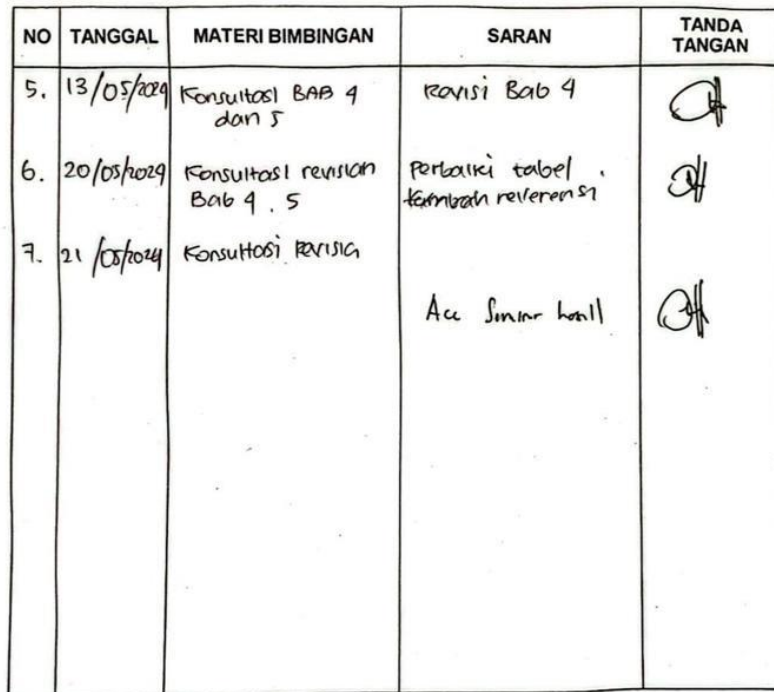 NO TANGGAL MATERI BIMBINGAN SARAN TANDA TANGAN
5. 13/05/2024 Konsultasi BAB 4 Revisi Bab 4
dan 5
6. 20/05/2024 Konsultasi revisian Perbaiki tabel .
Bab 4 . 5 tambah referensi
7. 21/05/2024 Konsultasi Revisia
Acc Seminar hasil